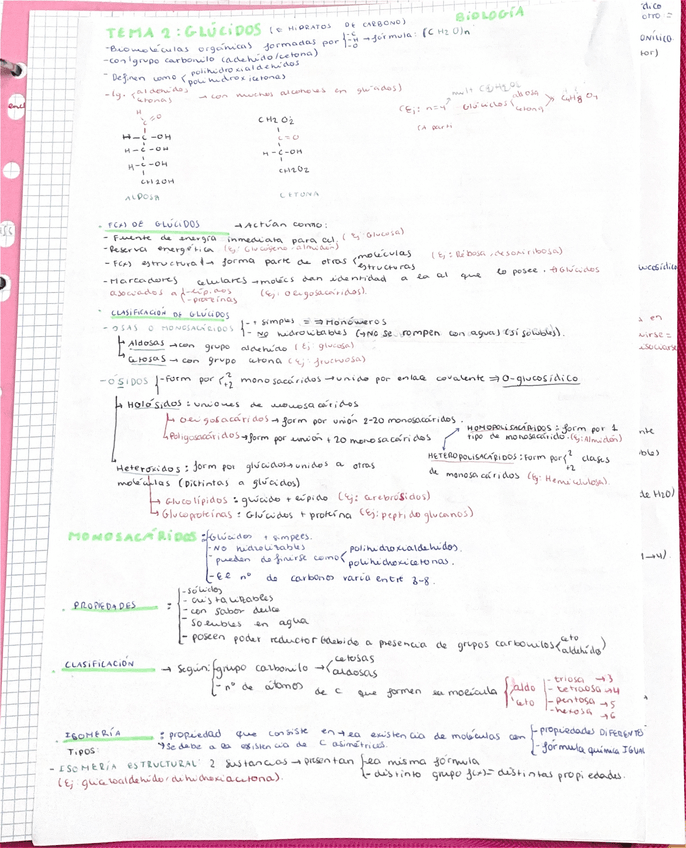 BIOLOGÍA
TEMA 2: GLÚCIDOS (O HIDRATOS DE CARBONO)
- Biomoléculas orgánicas formadas por {-C -H -O → fórmula: (CH2O)n
- con grupo carbonilo (aldehído/cetona)
- Definen como { polihidroxialdehídos polihidroxicetonas
- Ej. { aldehídos cetonas → con muchos alcoholes en glúcidos)
(Ej: n=4 Glúcidos
H
C=O
H-C-OH
H-C-OH
H-C-OH
CH2OH
ALDOSA
CH2O2
C=O
H-C-OH
CH2O2
CETONA
- F(X) DE GLÚCIDOS → Actúan como:
- Fuente de energía inmediata para cel. (Ej: Glucosa)
- Reserva energética (Ej: Glucógeno, almidón)
- F(x) estructural → forma parte de otras { moléculas estructuras (Ej: Ribosa, desoxirribosa)
- Marcadores celulares → molécs dan identidad a la cel que lo posee. → Glúcidos
asociados a {-lípidos -proteínas (Ej: Oligosacáridos).
- CLASIFICACIÓN DE GLÚCIDOS
- OSAS O MONOSACÁRIDOS {- + simples = ⇒ Monómeros
- NO hidrolizables (→ NO se rompen con agua) (sí solubles).
↳ Aldosas → con grupo aldehído (Ej: glucosa)
↳ Cetosas → con grupo cetona (Ej: fructuosa)
- ÓSIDOS {- Form por { 2 +2 monosacáridos → unido por enlace covalente ⇒ O-glucosídico
↳ Holósidos: uniones de monosacáridos
↳ Oligosacáridos → form por unión 2-20 monosacáridos.
↳ Polisacáridos → form por unión +20 monosacáridos
HOMOPOLISACÁRIDOS: form por 1
tipo de monosacárido. (Ej: Almidón)
HETEROPOLISACÁRIDOS: form por { 2 +2 clases
de monosacáridos (Ej: Hemicelulosa).
Heterósidos: form por glúcidos → unidos a otras
moléculas (distintas a glúcidos)
↳ Glucolípidos: glúcido + lípido (Ej: cerebrósidos)
↳ Glucoproteínas: Glúcidos + proteína (Ej: peptidoglucanos)
MONOSACÁRIDOS: {- Glúcidos + simples.
- NO hidrolizables
- pueden definirse como { polihidroxialdehídos. polihidroxicetonas.
- El nº de carbonos varía entre 3-8.
. PROPIEDADES : {- sólidos
- cristalizables
- con sabor dulce
- solubles en agua
- poseen poder reductor (debido a presencia de grupos carbonilos { ceto aldehído)
. CLASIFICACIÓN → Según: { grupo carbonilo → { cetosas aldosas
- nº de átomos de C que formen su molécula { aldo ceto
- triosa → 3
- tetraosa → 4
- pentosa → 5
- hexosa → 6
. ISOMERÍA : propiedad que consiste en → la existencia de moléculas con {- propiedades DIFERENTES
TIPOS: → se debe a la existencia de C asimétricos. - fórmula química IGUAL
- ISOMERÍA ESTRUCTURAL: 2 sustancias → presentan {- la misma fórmula
(Ej: gliceraldehído/dehidroxiacetona). - distinto grupo f(x) = distintas propiedades.